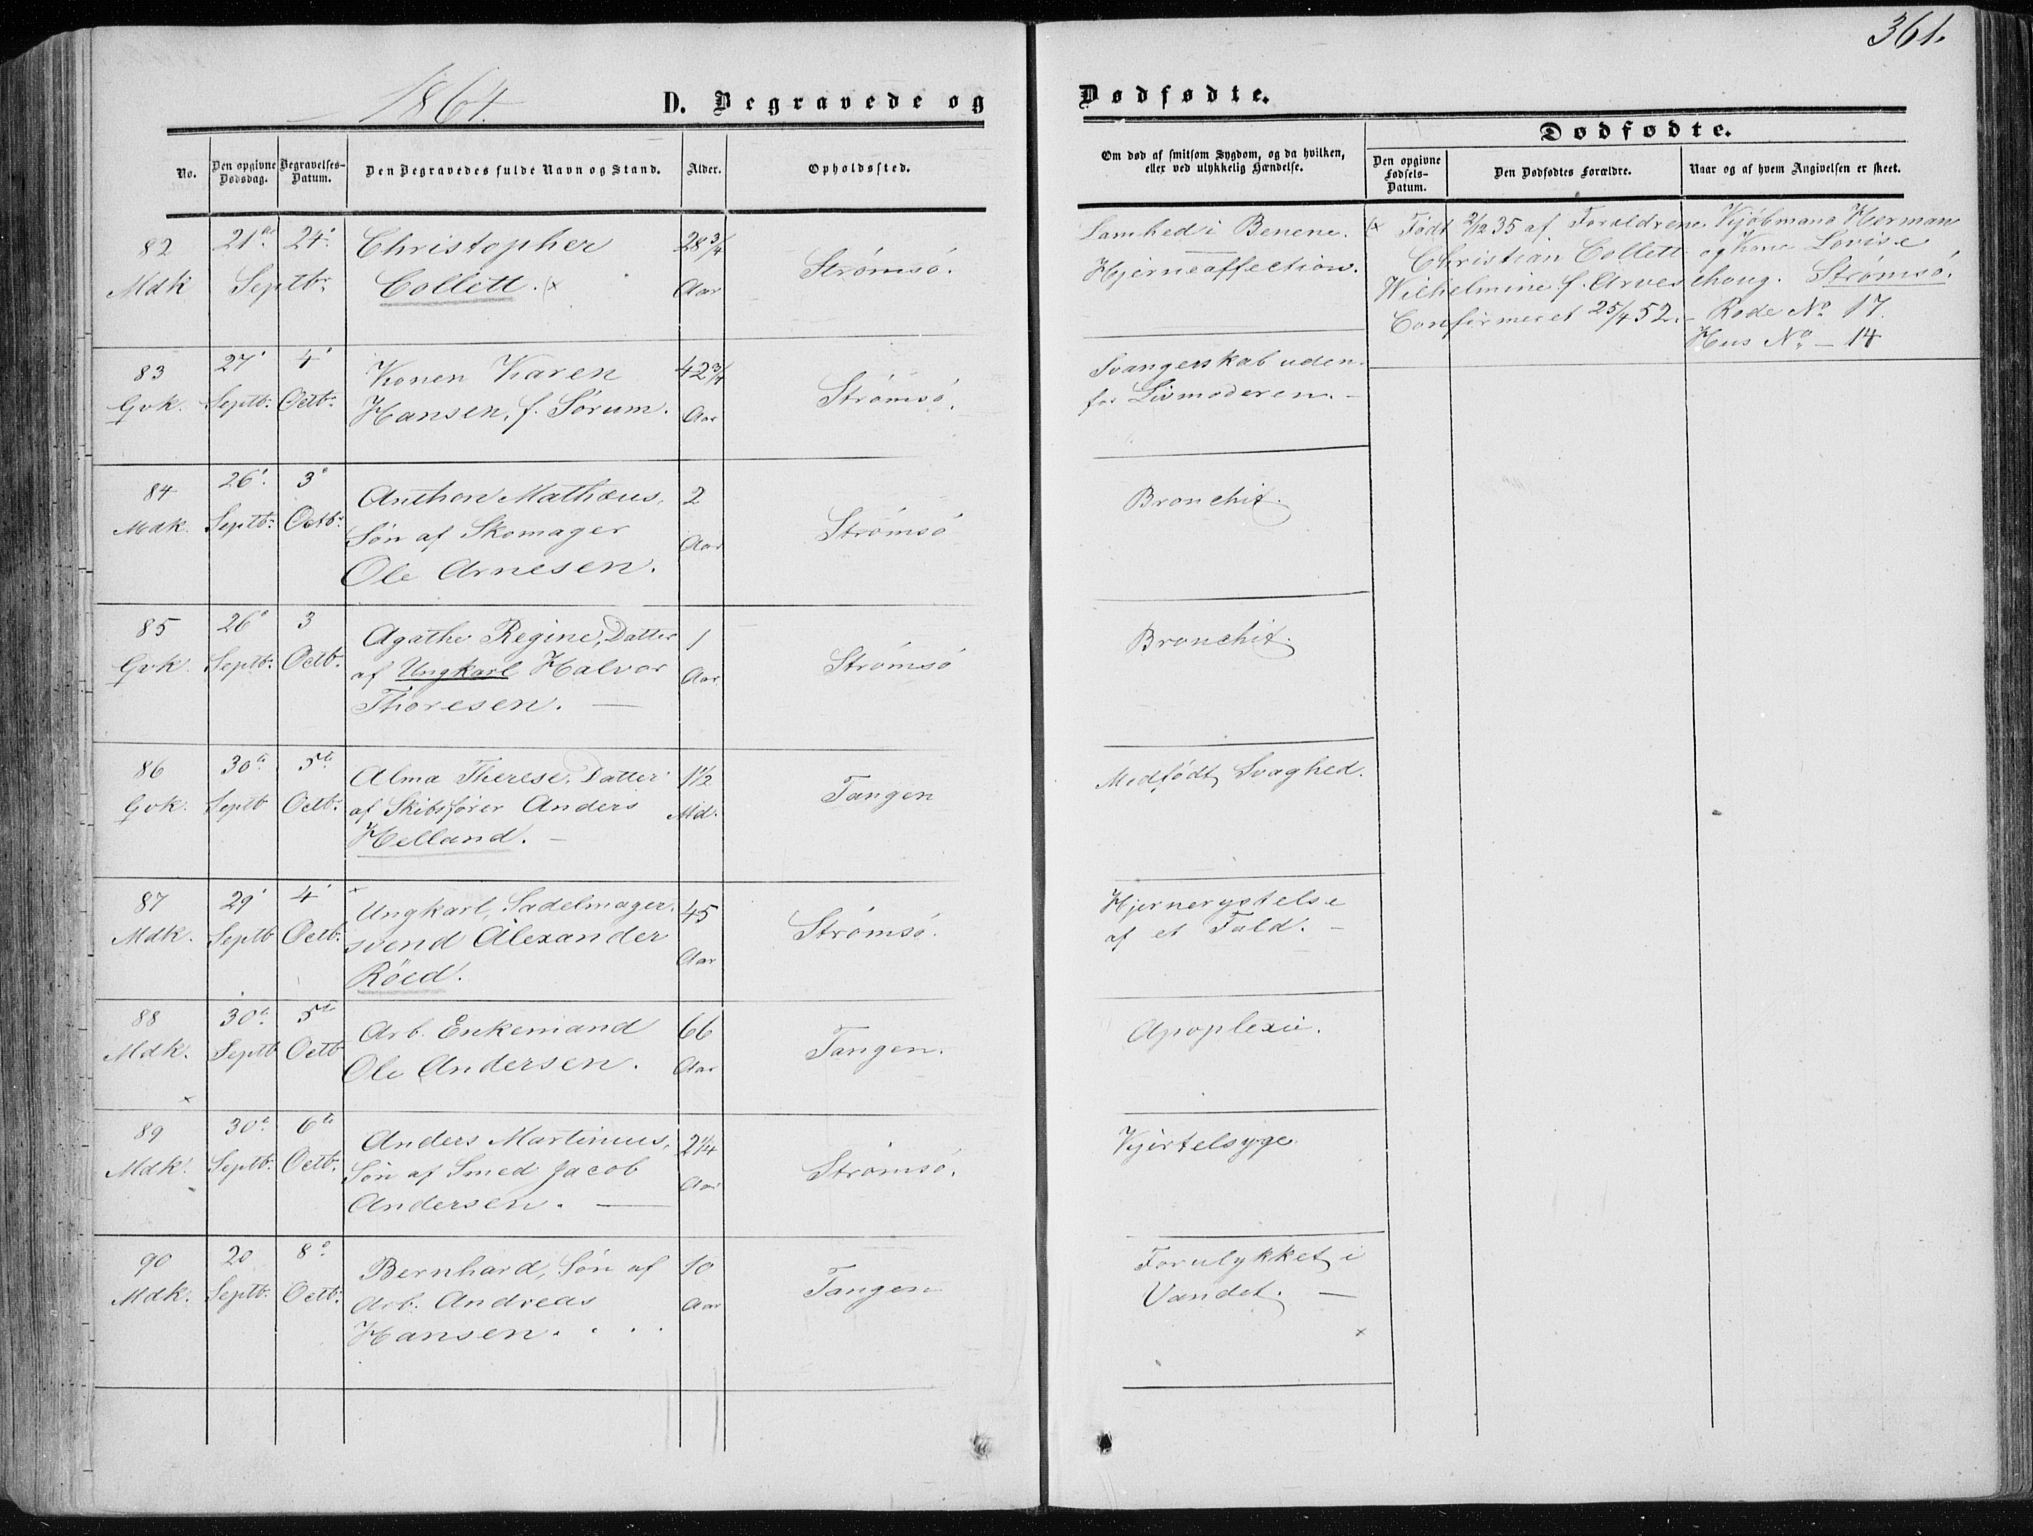 361.
1864.
D. Begravede og
Dødfødte.
No.
Den opgivne Dødsdag.
Begravelses-Datum.
Den Begravedes fulde Navn og Stand.
Alder.
Opholdssted.
Om død af smitsom Sygdom, og da hvilken,
eller ved ulykkelig Hændelse.
Dødfødte.
Den opgivne Fødsels-Datum.
Den Dødfødtes Forældre.
Naar og af hvem Angivelsen er skeet.
82 21de 24' Christopher 28 3/4 Strømsö. Lamhed i Benene.
Mdk Septbr Collett. (x Aar Hjerneaffection.
(x Født 2/12 35 af Forældrene Kjøbmand Herman
Christian Collett og Kone Lovise
Wilhelmine f. Arveschoug. Strømsö.
Confirmeret 25/4 52. – Rode No 17.
Hus No – 14
83 27' 4' Konen Karen 42 3/4 Strømsö. Svangerskab uden-
Gvk. Septb. Octbr. Hansen, f. Sörum. Aar for Livmoderen. –
84 26' 3' Anthon Mathæus, 2 Strømsö Bronchit.
Mdk. Septbr. Octbr Sön af Skomager Aar
Ole Arnesen.
85 26' 3 Agathe Regine, Datter 1 Strømsö Bronchit.
Gvk. Septbr. Octb. af Ungkarl Halvor Aar
Thoresen. —
86 30te 5te Alma Therese, Datter 1 1/2 Tangen Medfødt Svaghed.
Gvk. Septb Octbr. af Skibsfører Anders Md.
Helland. –
87 29' 4' Ungkarl, Sadelmager- 45 Strømsö. Hjernerystelse
Mdk. Septb Octb. svend Alexander Aar af et Fald. –
Röed.
88 30te 5te Arb. Enkemand 66 Tangen. Apoplexie.
Mdk. Septb Octb Ole Andersen. Aar
89 30te 6te Anders Martinius, 2 1/4 Strömsö. Kjertelsyge
Mdk. Septb. Octb. Sön af Smed Jacob Aar
Andersen. —
90 20 8de Bernhard, Sön af 10 Tangen Forulykket i
Mdk. Septb. Octb. Arb. Andreas Aar Vandet. —
Hansen. . . .